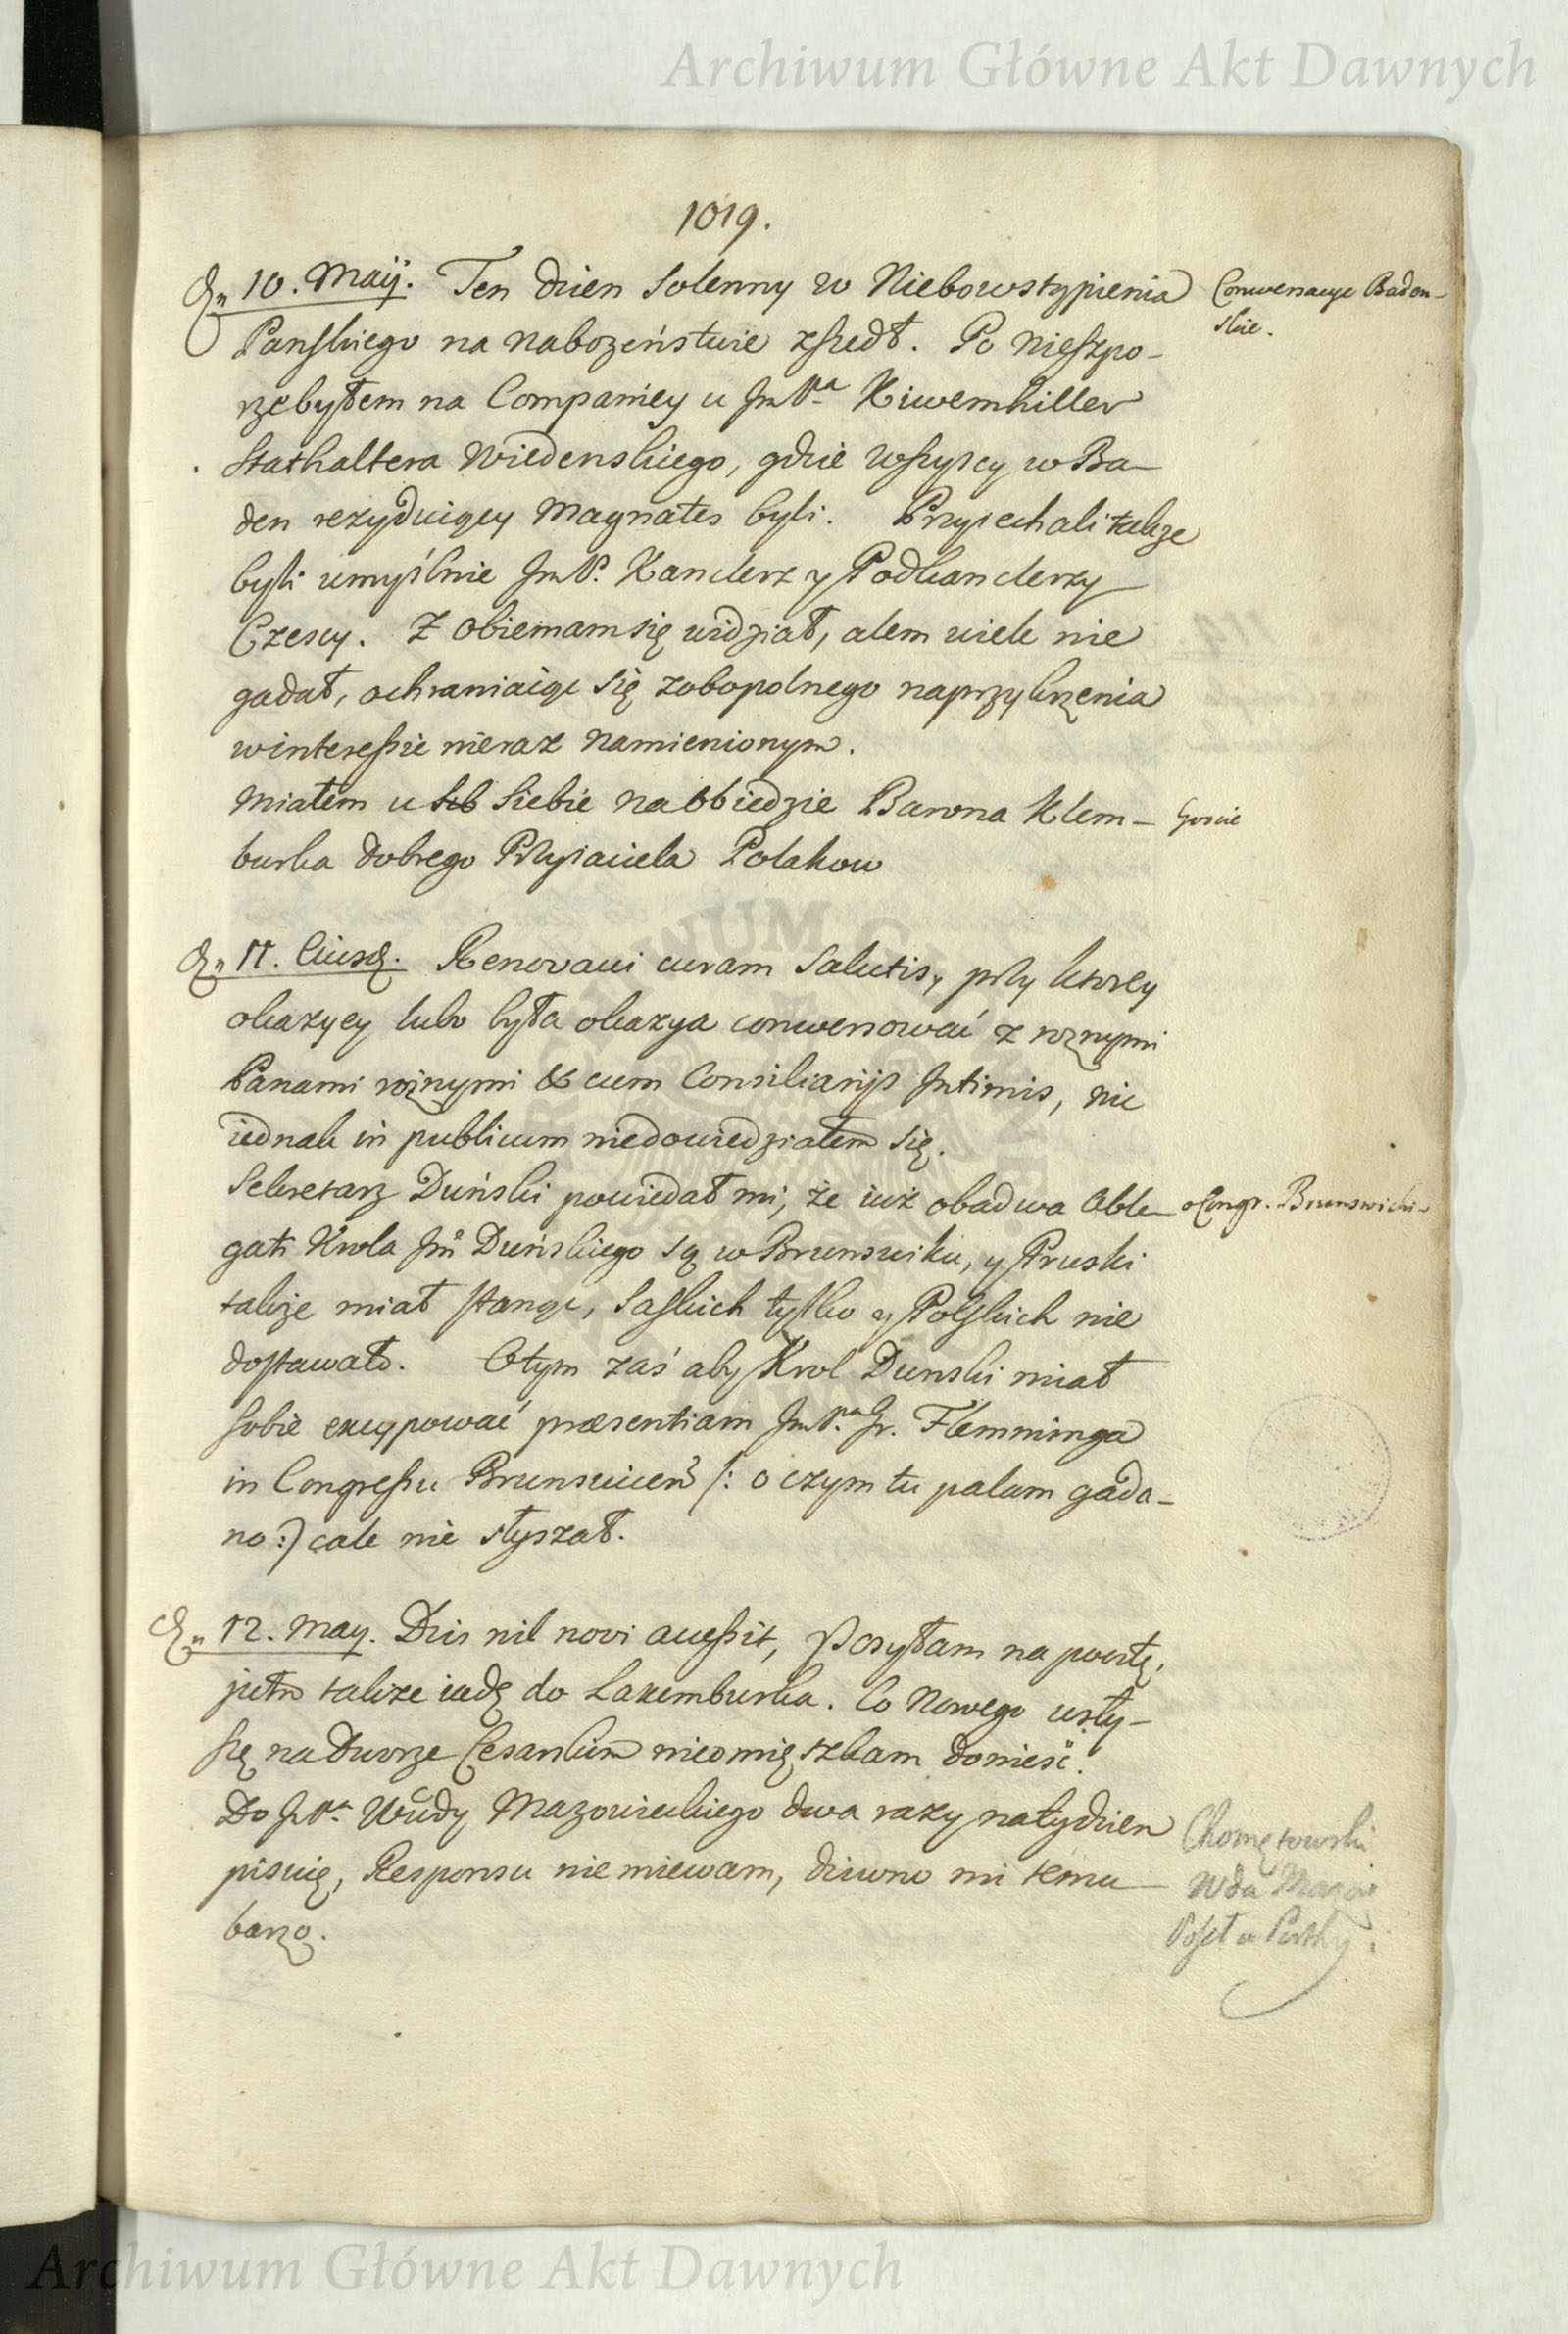 Archiwum Główne Akt Dawnych
1019.
Dn 10. Maij. Ten dzien Solenny w Niebowstąpienia
Conwersacye Baden-
skie.
Panskiego na nabozeństwie zszedł. Po nieszpo-
rze byłem na Companiey u JmPa Kiwemhiller
Stathaltera Wiedenskiego, gdzie wszyscy w Ba-
den rezyduiący Magnates byli. Przyiechali takze
byli umyślnie JmP. Kanclerz y Podkanclerzy
Czescy. Z obiemam się widział, alem wiele nie
gadał, ochraniaiąc się zobopolnego naprzykrzenia
w interessie nieraz namienionym.
Miałem u Sieb Siebie na obiedzie Barona Klem-
Goscie
burka dobrego Przyiaciela Polakow
Dn 11. Eiusd. Renovavi curam Salutis, przy ktorey
okazyey lubo była okazya conwersować z roznymi
Panami roznymi & cum Consiliarijs Intimis, nic
iednak in publicum niedowiedziałem się.
Sekretarz Duński powiedał mi, że iuż obadwa Able-
o Congr. Brunswicki-
gati Krola Jm Duńskiego są w Brunswiku, y Pruski
także miał stanąc, Saskich tylko y Polskich nie
dostawało. O tym zaś aby Krol Dunski miał
sobie excypować præsentiam JmPna Gr. Flemminga
in Congressu Brunsvicen /: o czym tu palam gada-
no :/ cale nie słyszał.
Dn 12. May. Dzis nil novi accessit, Posyłam na pocztę,
jutro takze iadę do Laxemburka. Co Nowego usły-
szę na Dworze Cesarskim nieomięszkam donieść.
Do JPa Wdy Mazowieckiego dwa razy na tydzien
pisuię, Responsu nie miewam, dziwno mi temu
barzo.
Chomętowski
Wda Mazow
Poseł u Porthy.
Archiwum Główne Akt Dawnych